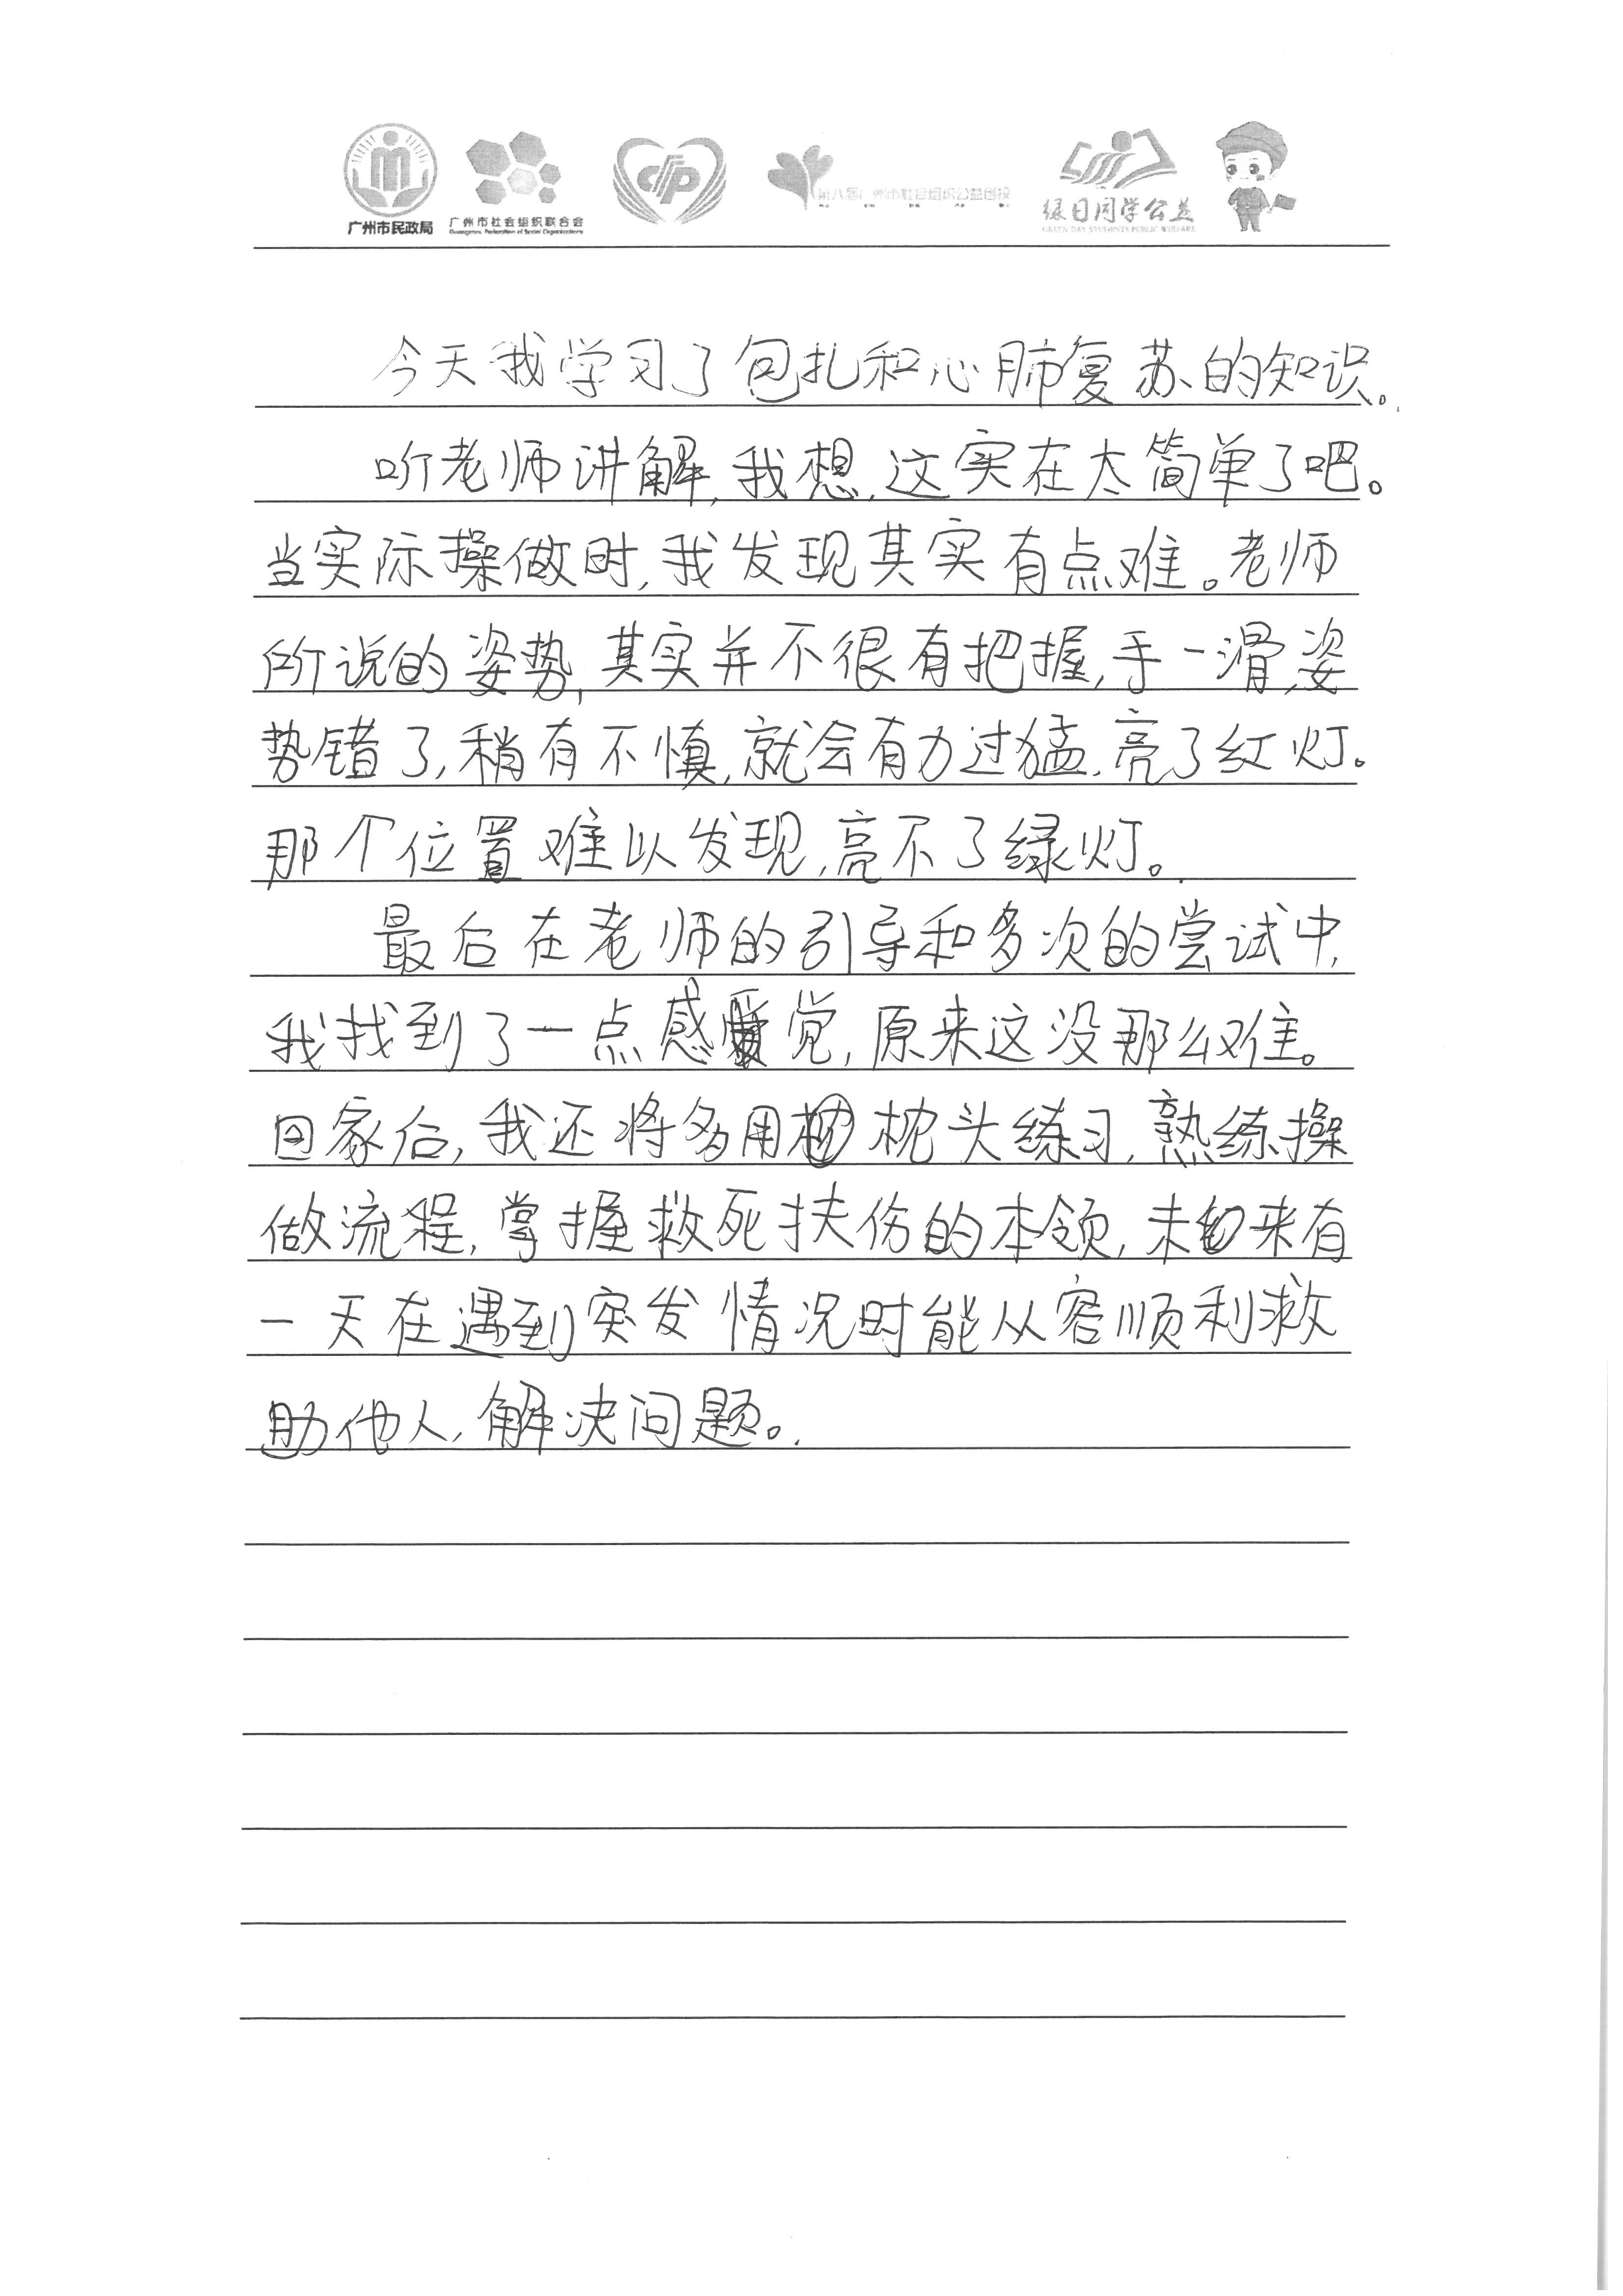 广州市民政局
广州市社会组织联合会
Guangzhou Federation of Social Organizations
第八届广州市社会组织公益创投
绿日同学公益
GREEN DAY STUDENTS PUBLIC WELFARE
今天我学习了包扎和心肺复苏的知识。
听老师讲解,我想,这实在太简单了吧。
当实际操做时,我发现其实有点难。老师
所说的姿势,其实并不很有把握,手一滑,姿
势错了,稍有不慎,就会有力过猛,亮了红灯。
那个位置难以发现,亮不了绿灯。
最后在老师的引导和多次的尝试中,
我找到了一点感觉,原来这没那么难。
回家后,我还将多用枕头练习,熟练操
做流程,掌握救死扶伤的本领,未来有
一天在遇到突发情况时能从容顺利救
助他人,解决问题。